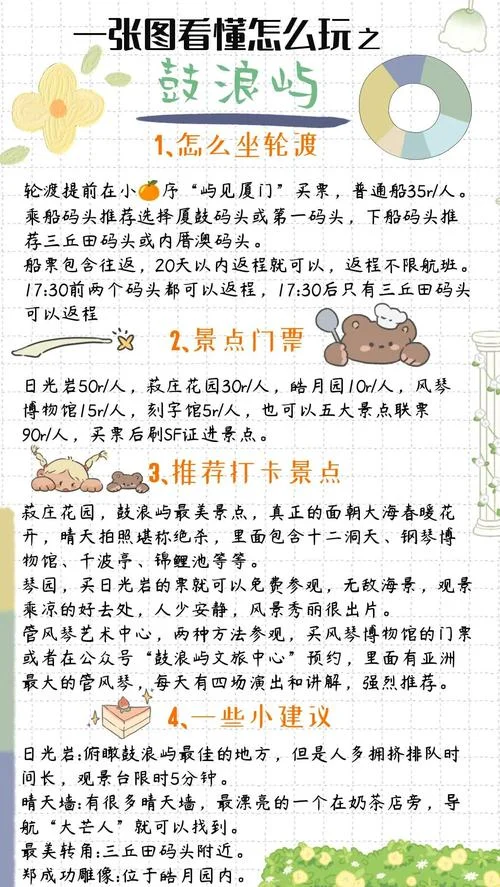 一张图看懂怎么玩之
鼓浪屿
1、怎么坐轮渡
轮渡提前在小🍊序“屿见厦门”买票，普通船35r/人。
乘船码头推荐选择厦鼓码头或第一码头，下船码头推
荐三丘田码头或内厝澳码头。
船票包含往返，20天以内返程就可以，返程不限航班。
17:30前两个码头都可以返程，17:30后只有三丘田码头
可以返程
2、景点门票
日光岩50r/人，菽庄花园30r/人，皓月园10r/人，风琴
博物馆15r/人，刻字馆5r/人，也可以五大景点联票
90r/人，买票后刷SF证进景点。
3、推荐打卡景点
菽庄花园，鼓浪屿最美景点，真正的面朝大海春暖花
开，晴天拍照堪称绝杀，里面包含十二洞天、钢琴博
物馆、千波亭、锦鲤池等等。
琴园，买日光岩的票就可以免费参观，无敌海景，观景
乘凉的好去处，人少安静，风景秀丽很出片。
管风琴艺术中心，两种方法参观，买风琴博物馆的门票
或者在公众号“鼓浪屿文旅中心”预约，里面有亚洲
最大的管风琴，每天有四场演出和讲解，强烈推荐。
4、一些小建议
日光岩:俯瞰鼓浪屿最佳的地方，但是人多拥挤排队时
间长，观景台限时5分钟。
晴天墙:有很多晴天墙，最漂亮的一个在奶茶店旁，导
航“大芒人”就可以找到。
最美转角:三丘田码头附近。
郑成功雕像:位于皓月园内。